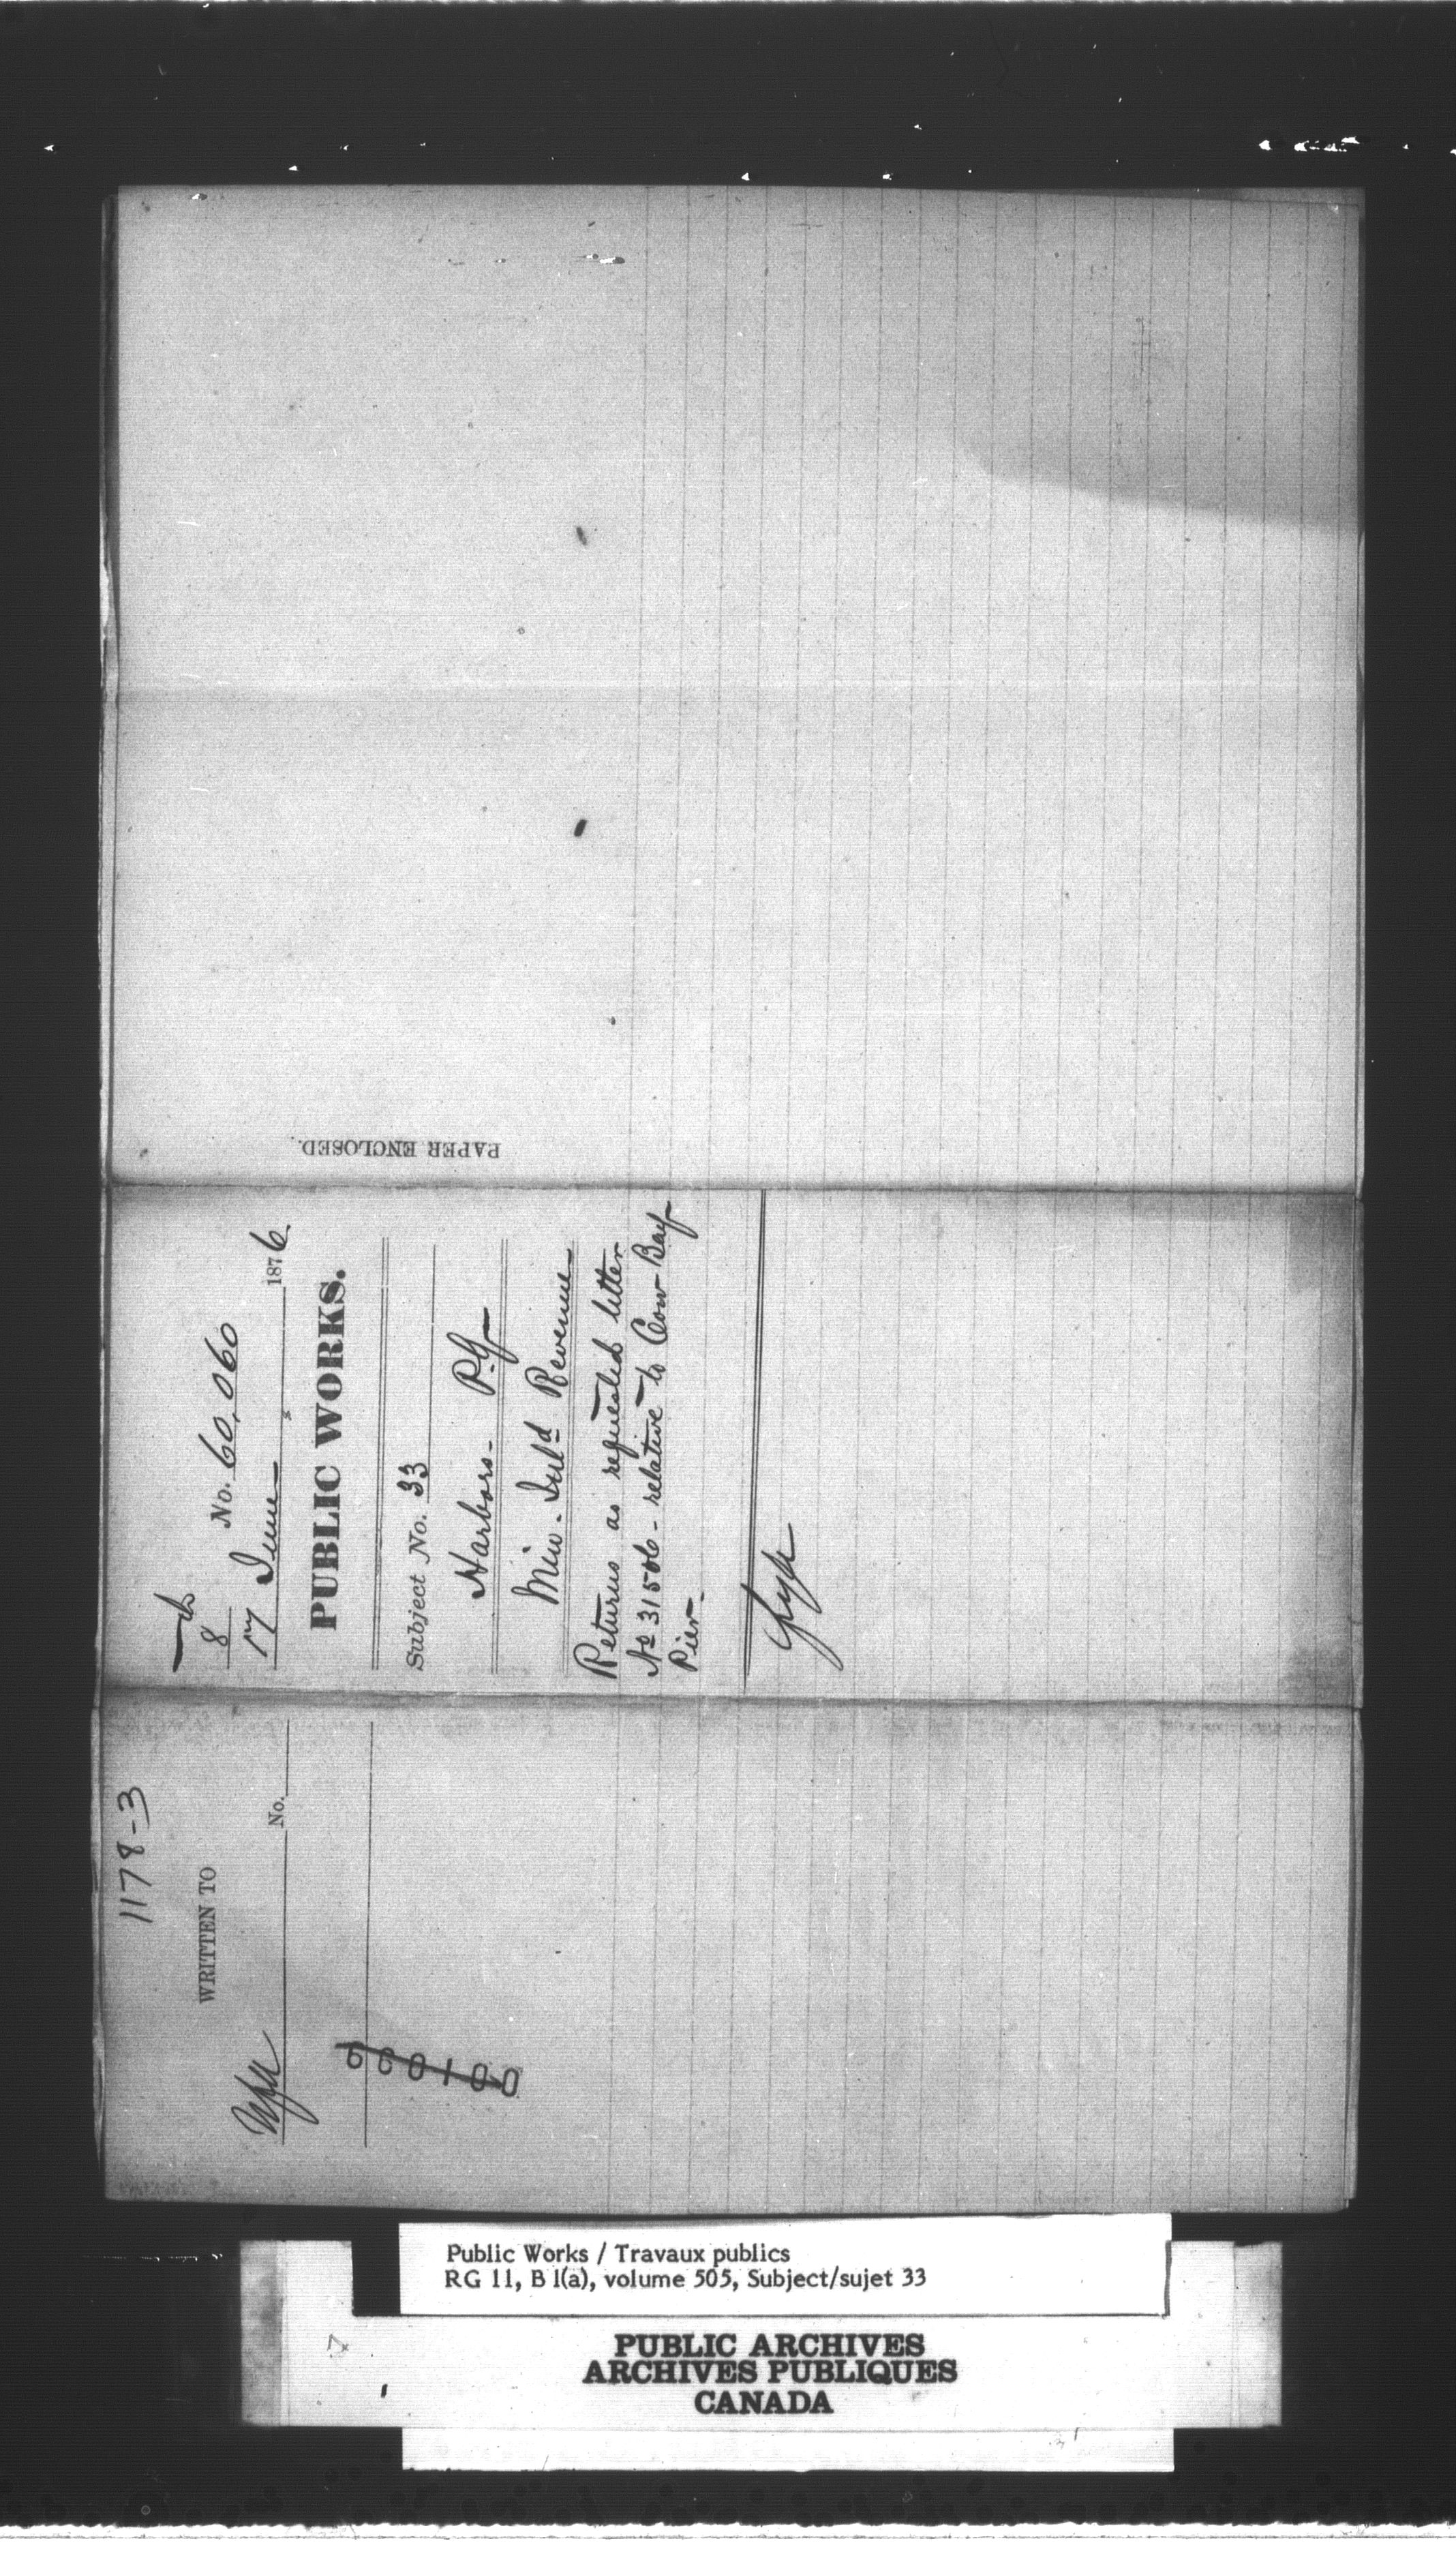 1178-3
WRITTEN TO
No.
001099
8
No. 60,060
17 June 1876.
PUBLIC WORKS.
Subject No. 33
Harbors-
Min. Inld Revenue
Returns as requested letter
No 31506 - relative to Cow Bay
Pier-
PAPER ENCLOSED.
Public Works / Travaux publics
RG 11, B 1(a), volume 505, Subject/sujet 33
PUBLIC ARCHIVES
ARCHIVES PUBLIQUES
CANADA